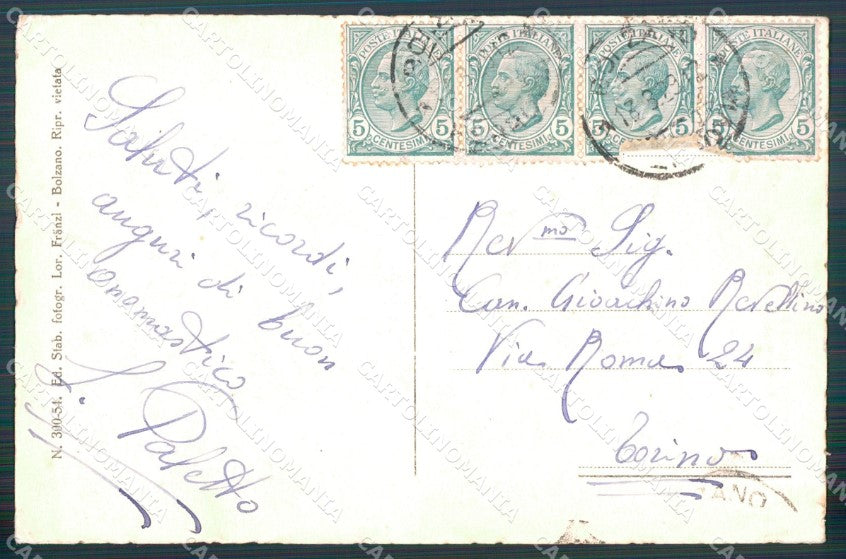 N. 300-51. Ed. Stab. fotogr. Lor. Fränzl - Bolzano. Ripr. vietata
Saluti, ricordi,
auguri di buon
onomastico
POSTE ITALIANE POSTE ITALIANE POSTE ITALIANE POSTE ITALIANE
5 5 5 5 5 5 5
CENTESIMI CENTESIMI CENTESIMI CENTESIMI
Rev mo Sig.
Can. Gioachino Revellino
Via Roma 24
Torino
ANO
CARTOLINOMANIA